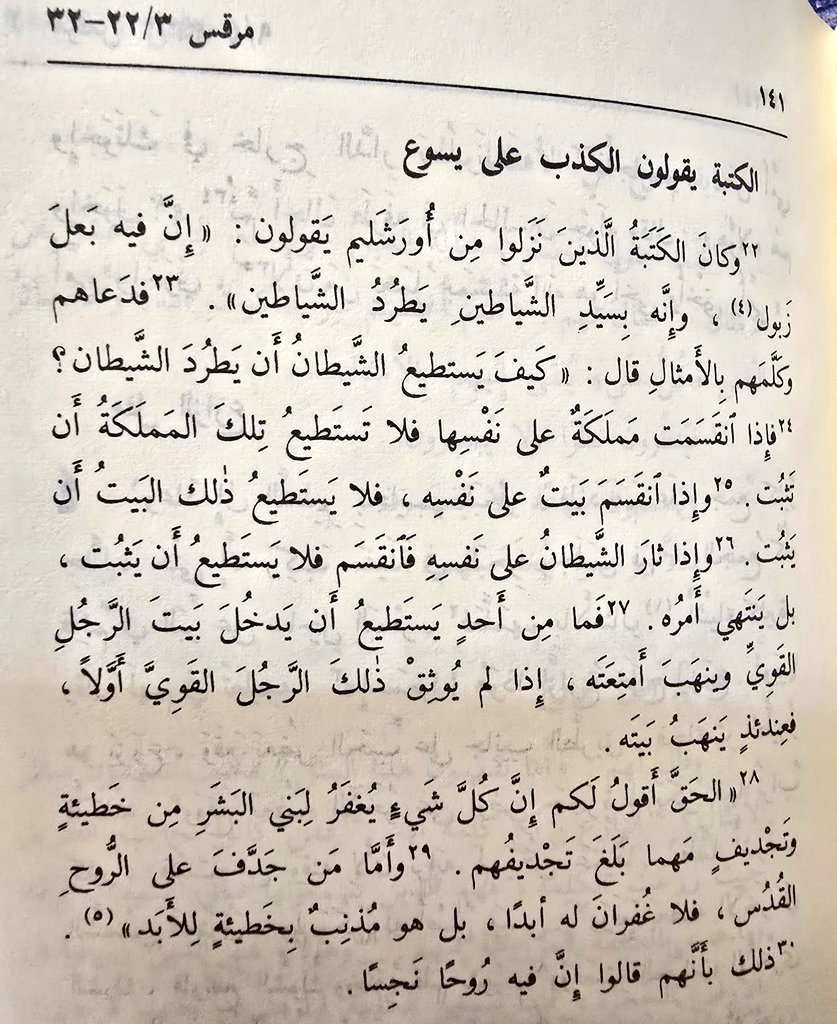 مرقس ٣/ ٢٢–٣٢
١٤١
الكتبة يقولون الكذب على يسوع
٢٢وكانَ الكَتَبَةُ الَّذينَ نَزَلوا مِن أُورَشليم يَقولون : « إِنَّ فيه بَعلَ
زَبول(٤) ، وإِنَّه بِسَيِّدِ الشَّياطينِ يَطرُدُ الشَّياطين» . ٢٣فدَعاهم
وكَلَّمَهم بِالأَمثالِ قال : « كَيفَ يَستطيعُ الشَّيطانُ أَن يَطرُدَ الشَّيطان ؟
٢٤فإِذا ٱنقَسَمَت مَملَكَةٌ على نَفْسِها فلا تَستَطيعُ تِلكَ المَملَكَةُ أَن
تَثبُت . ٢٥وإِذا ٱنقَسَمَ بَيتٌ على نَفْسِه ، فلا يَستَطيعُ ذٰلك البَيتُ أَن
يَثبُت . ٢٦وإِذا ثارَ الشَّيطانُ على نَفسِهِ فَٱنقَسَم فلا يَستَطيعُ أَن يَثبُت ،
بل يَنتَهي أَمرُه . ٢٧فَما مِن أَحدٍ يَستَطيعُ أَن يَدخُلَ بَيتَ الرَّجُلِ
القَوِيِّ وينهَبَ أَمتِعَتَه ، إِذا لم يُوثِقْ ذٰلكَ الرَّجُلَ القَوِيَّ أَوَّلاً ،
فعِندئذٍ يَنهَبُ بَيتَه .
٢٨« الحَقَّ أَقولُ لَكم إِنَّ كُلَّ شَيءٍ يُغفَرُ لِبَني البَشَرِ مِن خَطيئةٍ
وتَجْديفٍ مَهما بَلَغَ تَجْديفُهم . ٢٩وأَمَّا مَن جَدَّفَ على الرُّوحِ
القُدُس ، فلا غُفرانَ له أبدًا ، بل هو مُذنِبٌ بِخَطيئةٍ لِلأَبَد »(٥) .
٣٠ذلك بأَنَّهم قالوا إِنَّ فيه رُوحًا نَجِسًا .